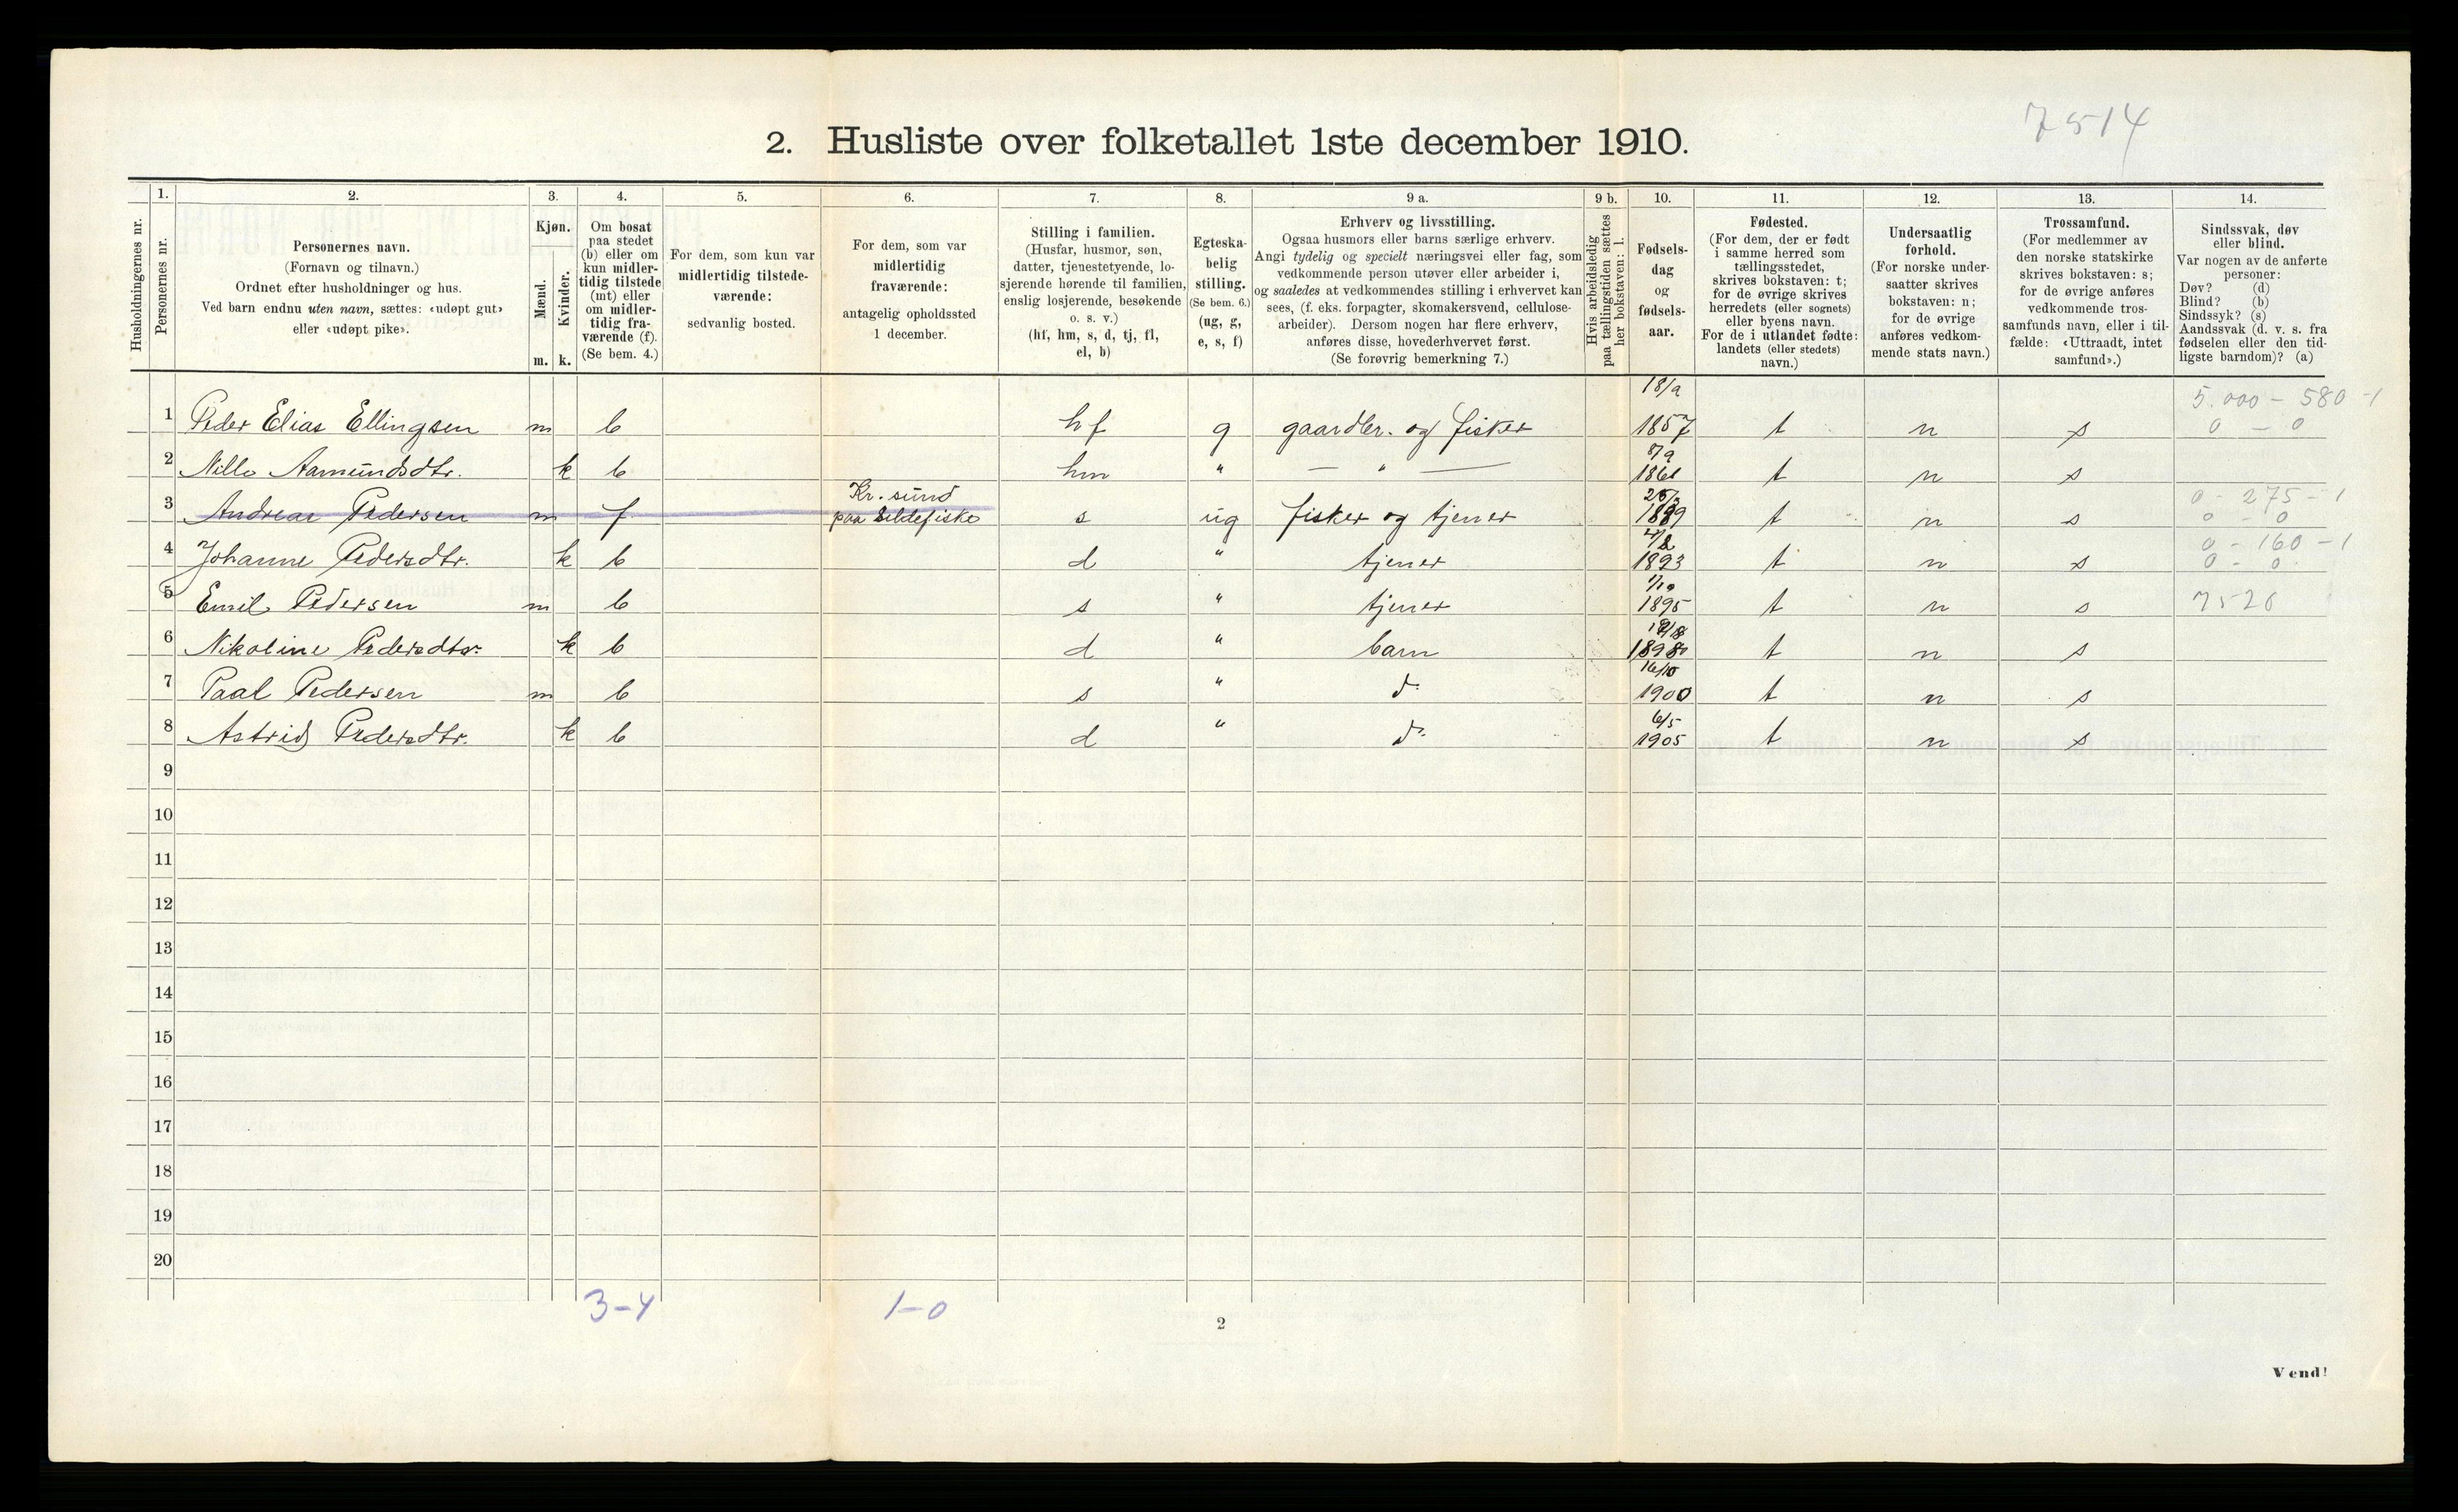 7514
2. Husliste over folketallet 1ste december 1910.
Husholdningernes nr.
1. Personernes nr.
2. Personernes navn.
(Fornavn og tilnavn.)
Ordnet efter husholdninger og hus.
Ved barn endnu uten navn, sættes: «udøpt gut»
eller «udøpt pike».
3. Kjøn.
Mænd. Kvinder.
m. k.
4. Om bosat
paa stedet
(b) eller om
kun midler-
tidig tilstede
(mt) eller
om midler-
tidig fra-
værende (f).
(Se bem. 4.)
5. For dem, som kun var
midlertidig tilstede-
værende:
sedvanlig bosted.
6. For dem, som var
midlertidig
fraværende:
antagelig opholdssted
1 december.
7. Stilling i familien.
(Husfar, husmor, søn,
datter, tjenestetyende, lo-
sjerende hørende til familien,
enslig losjerende, besøkende
o. s. v.)
(hf, hm, s, d, tj, fl,
el, b)
8. Egteska-
belig
stilling.
(Se bem. 6.)
(ug, g,
e, s, f)
9 a. Erhverv og livsstilling.
Ogsaa husmors eller barns særlige erhverv.
Angi tydelig og specielt næringsvei eller fag, som
vedkommende person utøver eller arbeider i,
og saaledes at vedkommendes stilling i erhvervet kan
sees, (f. eks. forpagter, skomakersvend, cellulose-
arbeider). Dersom nogen har flere erhverv,
anføres disse, hovederhvervet først.
(Se forøvrig bemerkning 7.)
9 b. Hvis arbeidsledig
paa tællingstiden sættes
her bokstaven: l.
10. Fødsels-
dag
og
fødsels-
aar.
11. Fødested.
(For dem, der er født
i samme herred som
tællingsstedet,
skrives bokstaven: t;
for de øvrige skrives
herredets (eller sognets)
eller byens navn.
For de i utlandet fødte:
landets (eller stedets)
navn.)
12. Undersaatlig
forhold.
(For norske under-
saatter skrives
bokstaven: n;
for de øvrige
anføres vedkom-
mende stats navn.)
13. Trossamfund.
(For medlemmer av
den norske statskirke
skrives bokstaven: s;
for de øvrige anføres
vedkommende tros-
samfunds navn, eller i til-
fælde: «Uttraadt, intet
samfund».)
14. Sindssvak, døv
eller blind.
Var nogen av de anførte
personer:
Døv? (d)
Blind? (b)
Sindssyk? (s)
Aandssvak (d. v. s. fra
fødselen eller den tid-
ligste barndom)? (a)
18/9 5.000 - 580 - 1
1 Peder Elias Ellingsen m b hf g gaardbr. og fisker 1857 t n s 0 - 0
8/9
2 Nille Aamundsdtr. k b hm " — " — t n s
Kr. sund 0 - 275 - 1
3 Andreas Pedersen m f paa sildefiske s ug fisker og tjener 1889 t n s 0 - 0
0 - 160 - 1
4 Johanne Pedersdtr. k b d " tjener 1893 t n s 0 - 0
5 Emil Pedersen m b s " tjener 1895 t n s 7520
6 Nikoline Pedersdtr. k b d " barn 1898 t n s
16/10
7 Paal Pedersen m b s " do. 1900 t n s
6/5
8 Astrid Pedersdtr. k b d " do. 1905 t n s
9
10
11
12
13
14
15
16
17
18
19
20
3-4 1-0
2
Vend!